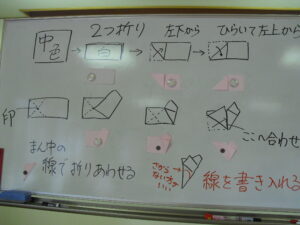 2つ折り 左下から ひらいて左上から
中色
白
印
ここへ合わせ
まん中の
線で折りあわせる
線を書き入れる